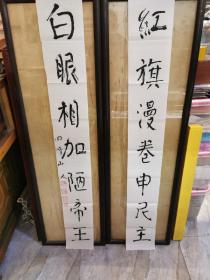 紅旗漫卷申民主
白眼相加陋帝王